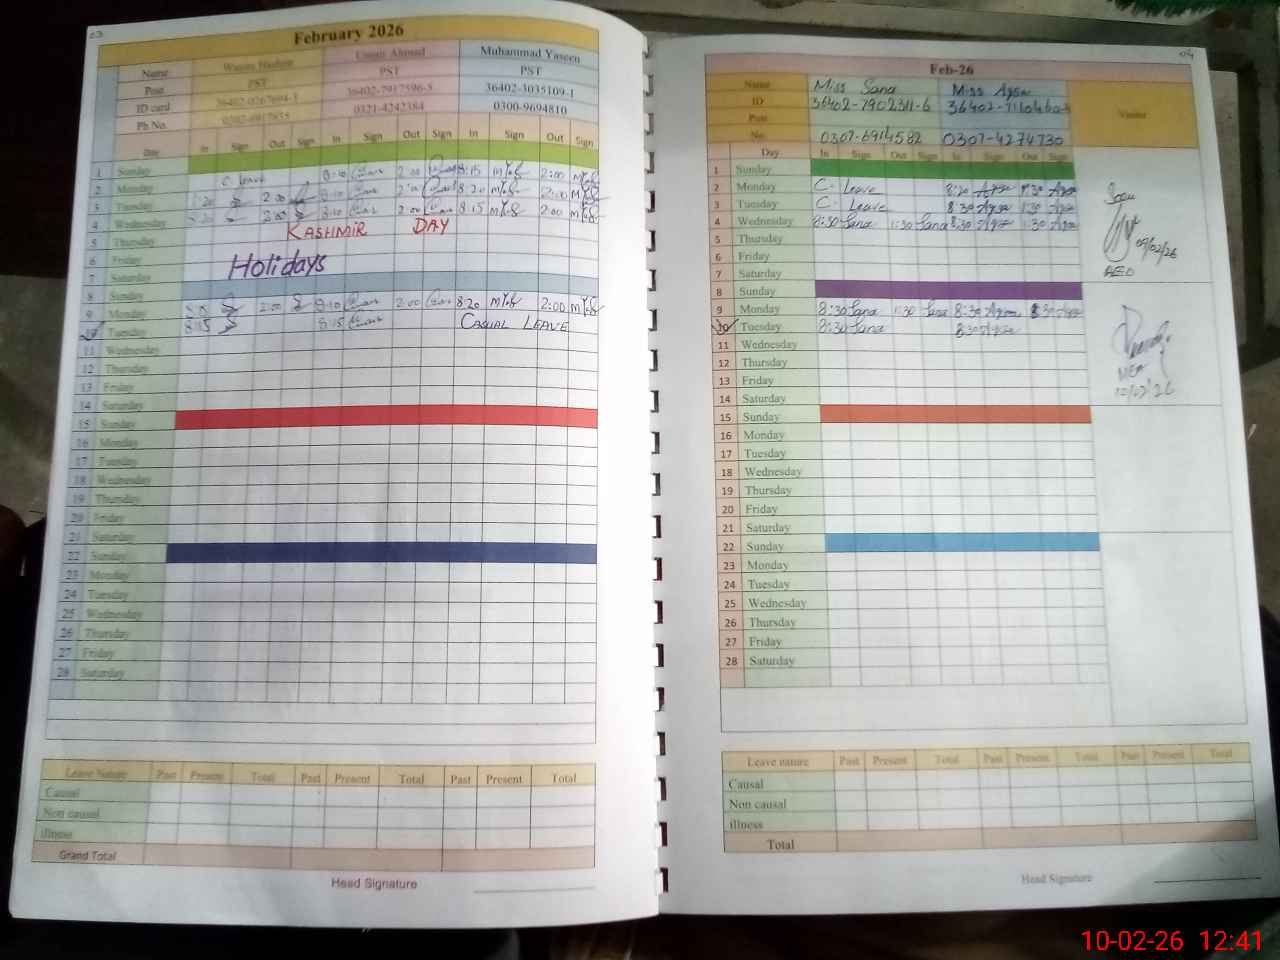 03
February 2026
Name Waseem Hashim Umair Ahmad Muhammad Yaseen
Post PST PST PST
ID card 36402-7917596-5 36402-3035109-1
Ph No. 0321-4242384 0300-9694810
Day In Sign Out Sign In Sign Out Sign In Sign Out Sign
1 Sunday
2 Monday C. Leave 8:10 2:00 8:15 2:00
3 Tuesday 2:00 8:10 2:00 8:20 2:00
4 Wednesday 2:00 8:10 2:00 8:15 2:00
5 Thursday KASHMIR DAY
6 Friday Holidays
7 Saturday
8 Sunday
9 Monday 2:00 8:10 2:00 8:20 2:00
10 Tuesday 8:15 8:15 CASUAL LEAVE
11 Wednesday
12 Thursday
13 Friday
14 Saturday
15 Sunday
16 Monday
17 Tuesday
18 Wednesday
19 Thursday
20 Friday
21 Saturday
22 Sunday
23 Monday
24 Tuesday
25 Wednesday
26 Thursday
27 Friday
28 Saturday
Leave Nature Past Present Total Past Present Total Past Present Total
Causal
Non causal
illness
Grand Total
Head Signature
04
Feb-26
Name Miss Sana Miss Aqsa
ID 36402-7902311-6
Post
No. 0307-6914582 0307-4274730
Visitor
Day In Sign Out Sign In Sign Out Sign
1 Sunday
2 Monday C. Leave 8:30 Aqsa 1:30 Aqsa
3 Tuesday C. Leave 8:30 Aqsa 1:30 Aqsa
4 Wednesday 8:30 Sana 1:30 Sana 8:30 Aqsa 1:30 Aqsa
5 Thursday
09/02/26
6 Friday
AEO
7 Saturday
8 Sunday
9 Monday 8:30 Sana 1:30 Sana 8:30 Aqsa 1:30 Aqsa
10 Tuesday 8:30 Sana 8:30 Aqsa
11 Wednesday
12 Thursday
MEA
13 Friday
10/02/26
14 Saturday
15 Sunday
16 Monday
17 Tuesday
18 Wednesday
19 Thursday
20 Friday
21 Saturday
22 Sunday
23 Monday
24 Tuesday
25 Wednesday
26 Thursday
27 Friday
28 Saturday
Leave nature Past Present Total Past Present Total Past Present Total
Causal
Non causal
illness
Total
Head Signature
10-02-26 12:41